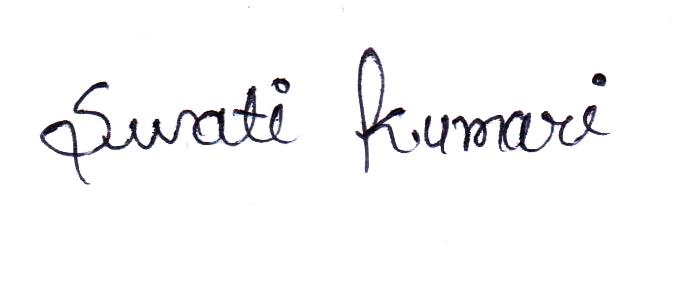 Swati Kumari